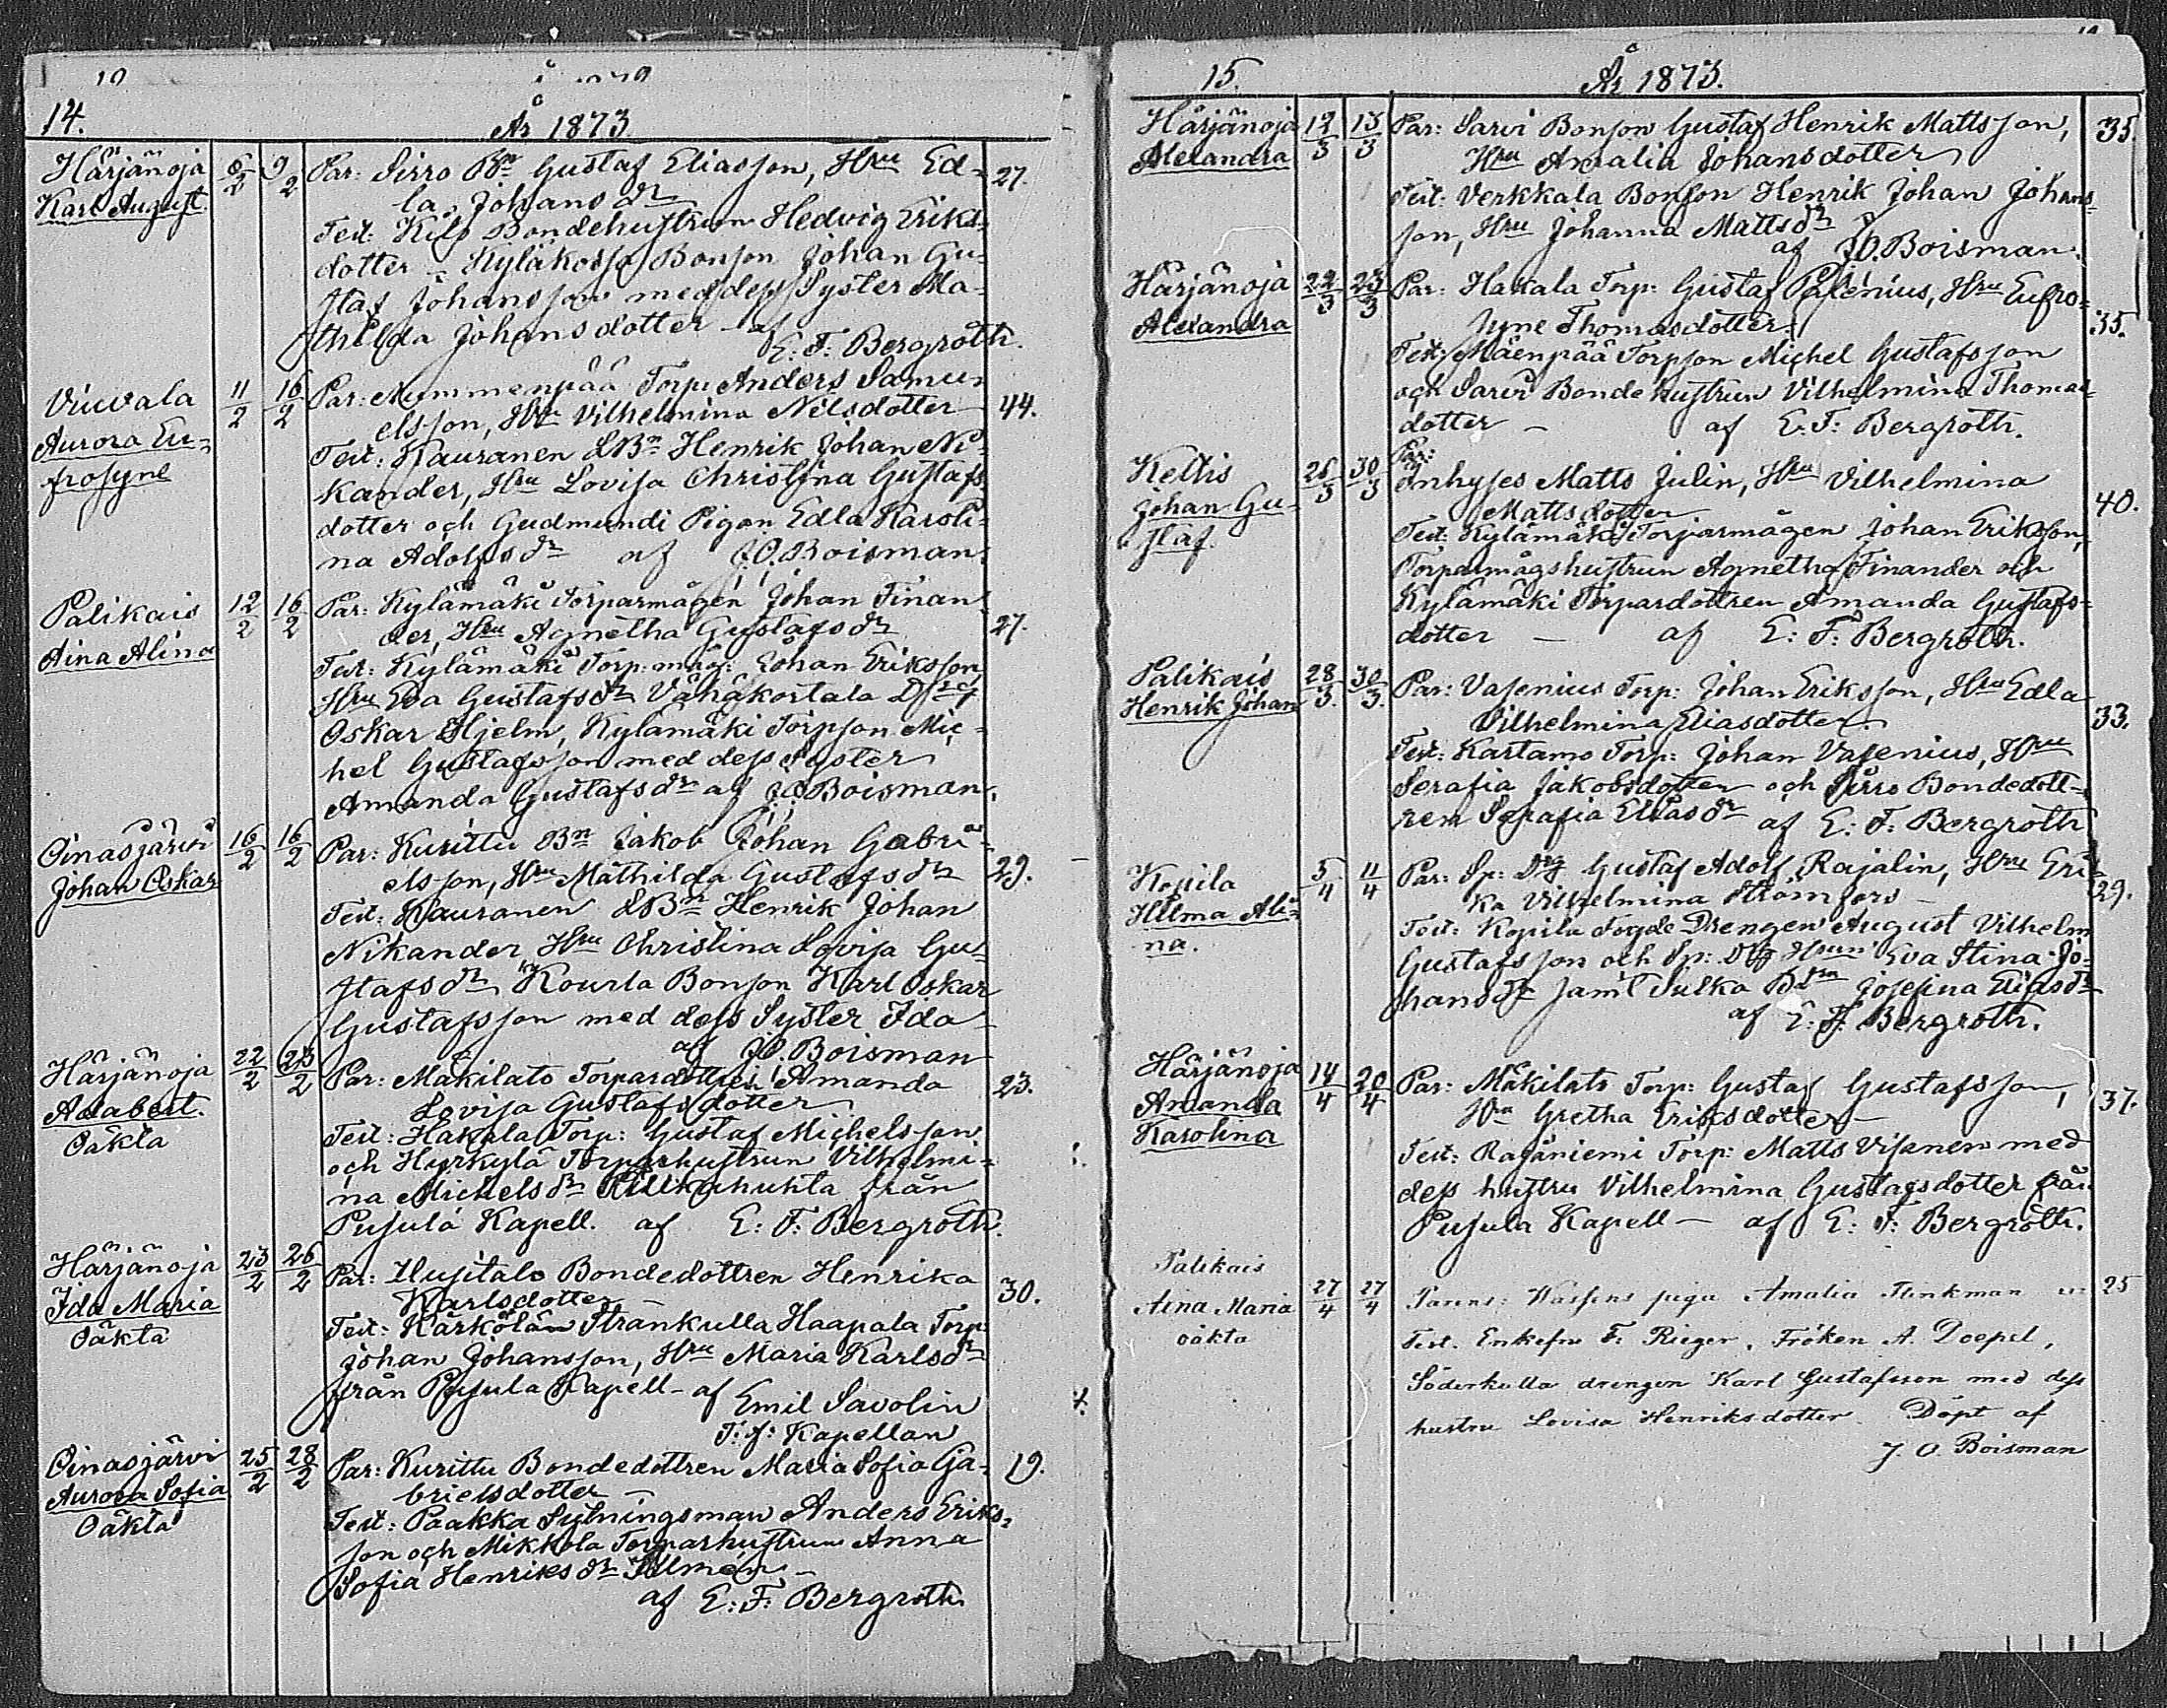 14.
År 1873
Härjänoja 6/2 9/2 Par: Sirro Bn Gustaf Eliasson, Hru Ed- 27.
Karl August. la Johansdr
Test: Kilo Bondehustrun Hedvig Eriks-
dotter - Kyläkossa Bonson Johan Gu-
staf Johansson med dess Syster Ma-
thilda Johansdotter - af
E. F. Bergroth.
Viuvala 11/2 16/2 Par: Nummenpää Torp: Anders Samu-
Aurora Eu- elsson, Hru Vilhelmina Nilsdotter 44.
frosyne Test: Kauranen LBn Henrik Johan Ni-
kander, Hru Lovisa Christina Gustafs-
dotter och Gudmundi Pigan Edla Karoli-
na Adolfsdr af J. O. Boisman.
Palikais 12/2 16/2 Par: Kylämäki Torparmågen Johan Finan-
Aina Alina der, Hru Agnetha Gustafsdr 27.
Test: Kylämäki Torp: måg: Johan Eriksson,
Hru Eva Gustafsdr Vähäkortala
Oskar Hjelm, Kylämäki Torpson Mic-
hel Gustafsson med dess Syster
Amanda Gustafsdr af J. O. Boisman.
Oinasjärvi 16/2 16/2 Par: Kurittu Bn Jakob Johan Gabri-
Johan Oskar elsson, Hru Mathilda Gustafsdr 29.
Test: Kauranen LBn Henrik Johan
Nikander, Hru Christina Lovisa Gu-
stafsdr, Kourla Bonson Karl Oskar
Gustafsson med dess Syster Ida
af J. O. Boisman
Härjänoja 22/2 23/2 Par: Mäkilato Torpardottren Amanda 23.
Adabert. Lovisa Gustafsdotter
Oäkta Test: Hakala Torp: Gustaf Michelsson
och Hyrkylä Torparhustrun Vilhelmi-
na Michelsdr från
Pusula Kapell. af E: F: Bergroth.
Härjänoja 23/2 26/2 Par: Uusitalo Bondedottren Henrika
Ida Maria Karlsdotter 30.
Oäkta Test: Kärkölän Strankulla Haapala Torp:
Johan Johansson, Hru Maria Karlsdr
från Pusula Kapell - af Emil Savolin
T: f: Kapellan
Oinasjärvi 25/2 28/2 Par: Kurittu Bondedottren Maria Sofia Ga- 19.
Aurora Sofia brielsdotter
Oäkta Test: Paakka Sytningsman Anders Eriks-
son och Mikkola Torparhustrun Anna
Sofia Henriksdr Silmén -
af E: F: Bergroth
15.
År 1873.
Härjänoja 12/3 13/3 Par: Sarvi Bonson Gustaf Henrik Mattsson, 35.
Alexandra Hru Amalia Johansdotter
Test: Verkkala Bonson Henrik Johan Johans-
son, Hru Johanna Mattsdr
af J. O. Boisman.
Härjänoja 22/3 23/3 Par: Hakala Torp: Gustaf Palenius, Hru Eufro-
Alexandra syne Thomasdotter 35.
Test: Mäenpää Torpson Michel Gustafsson
och Sarvi Bondehustrun Vilhelmina Thomas-
dotter - af E: F: Bergroth.
Par:
Kettis 26/3 30/3 Inhyses Matts Julin, Hru Vilhelmina
Johan Gu- Mattsdotter 40.
staf. Test: Kylämäki Torparmågen Johan Eriksson,
Torparmågshustrun Agnetha Finander och
Kylämäki Torpardottren Amanda Gustafs-
dotter - af E: F: Bergroth.
Palikais 28/3. 30/3. Par: Vasenius Torp: Johan Eriksson, Hru Edla
Henrik Johan Vilhelmina Eliasdotter 33.
Test: Kartamo Torp: Johan Vasenius, Hru
Serafia Jakobsdotter och Sirro Bondedott-
ren Serafia Eliasdr af E: F: Bergroth
Kopila 5/4 11/4 Par: Sp: Drg Gustaf Adolf Rajalin, Hru Eri-
Hilma Ali- ka Vilhelmina Strömfors 29.
na. Test: Kopila Fogde Drengen August Vilhelm
Gustafsson och Sp: Drg Hrun Eva Stina Jo-
hansdr samt Sulka Josefina Eliasdr
af E: F: Bergroth.
Härjänoja 14/4 20/4 Par: Mäkilato Torp: Gustaf Gustafsson, 37.
Amanda Hru Gretha Eriksdotter -
Karolina Test: Rajaniemi Torp: Matts Visanen med
dess hustru Vilhelmina Gustafsdotter från
Pusula Kapell - af E: F: Bergroth.
Palikais
Aina Maria 27/4 27/4 Parens: Wassens piga Amalia Flinkman 25
oäkta Test. Enkefru F: Rieger, Fröken A. Doepel,
Söderkulla drengen Karl Gustafsson med dess
hustru Lovisa Henriksdotter. Döpt af
J. O. Boisman